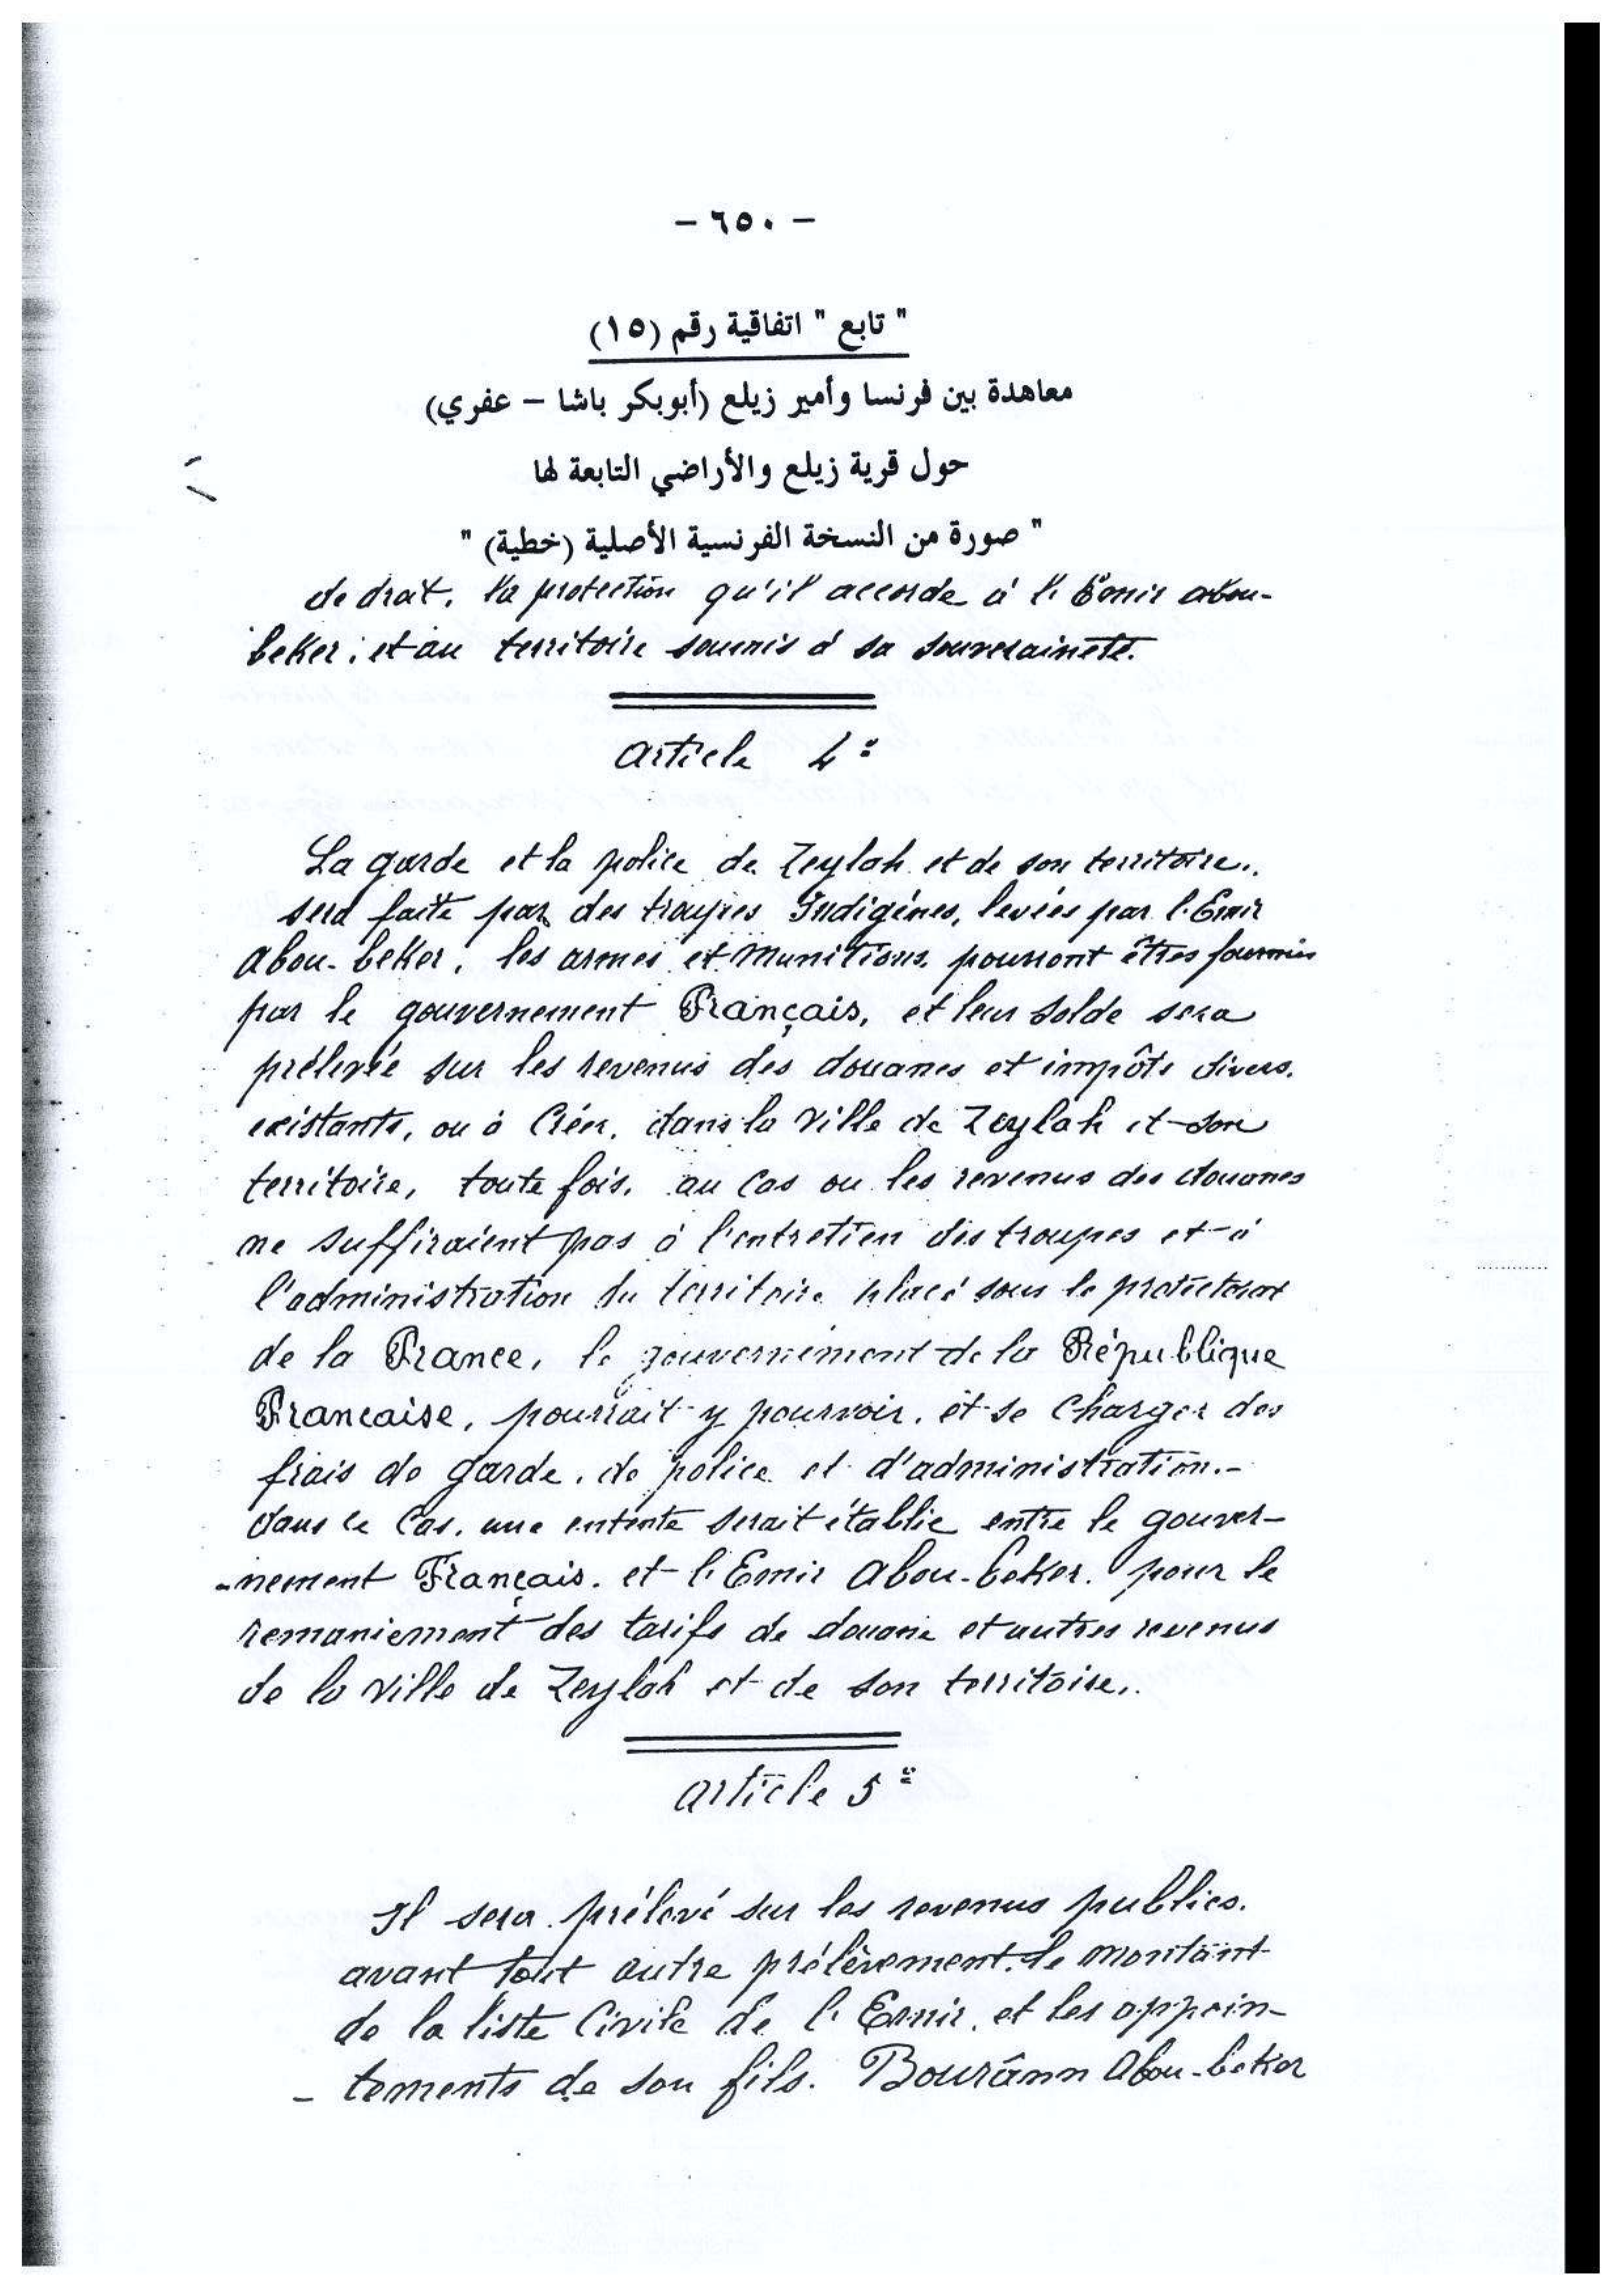 – ٦٥٠ –
" تابع " اتفاقية رقم (١٥)
معاهدة بين فرنسا وأمير زيلع (أبوبكر باشا – عفري)
حول قرية زيلع والأراضي التابعة لها
" صورة من النسخة الفرنسية الأصلية (خطية) "
de droit, la protection qu'il accorde à l'Emir abou-
beker, et au territoire soumis à sa souveraineté.
article 4e
La garde et la police de Zeylah et de son territoire..
sera faite par des troupes Indigènes, levées par l'Emir
Abou-beker, les armes et Munitions, pourront êtres fournies
par le gouvernement Français, et leur solde sera
prélevée sur les revenus des douanes et impôts divers.
existants, ou à Créer, dans la Ville de Zeylah et son
territoire, toute fois, au Cas ou les revenus des douanes
ne suffiraient pas à l'entretien des troupes et à
l'administration du territoire placé sous le protectorat
de la France, le gouvernement de la République
Francaise, pourrait-y pourvoir, et se Charger des
frais de garde, de police et d'administration.-
dans ce Cas, une entente serait établie entre le gouver-
-nement Français, et l'Emir Abou-beker, pour le
remaniement des tarifs de douane et autres revenus
de la Ville de Zeylah et de son territoire,.
article 5e
Il sera prélevé sur les revenus publics,
avant tout autre prélèvement, le montant
de la liste Civile de l'Emir, et les appoin-
- tements de son fils. Bourânn Abou-beker